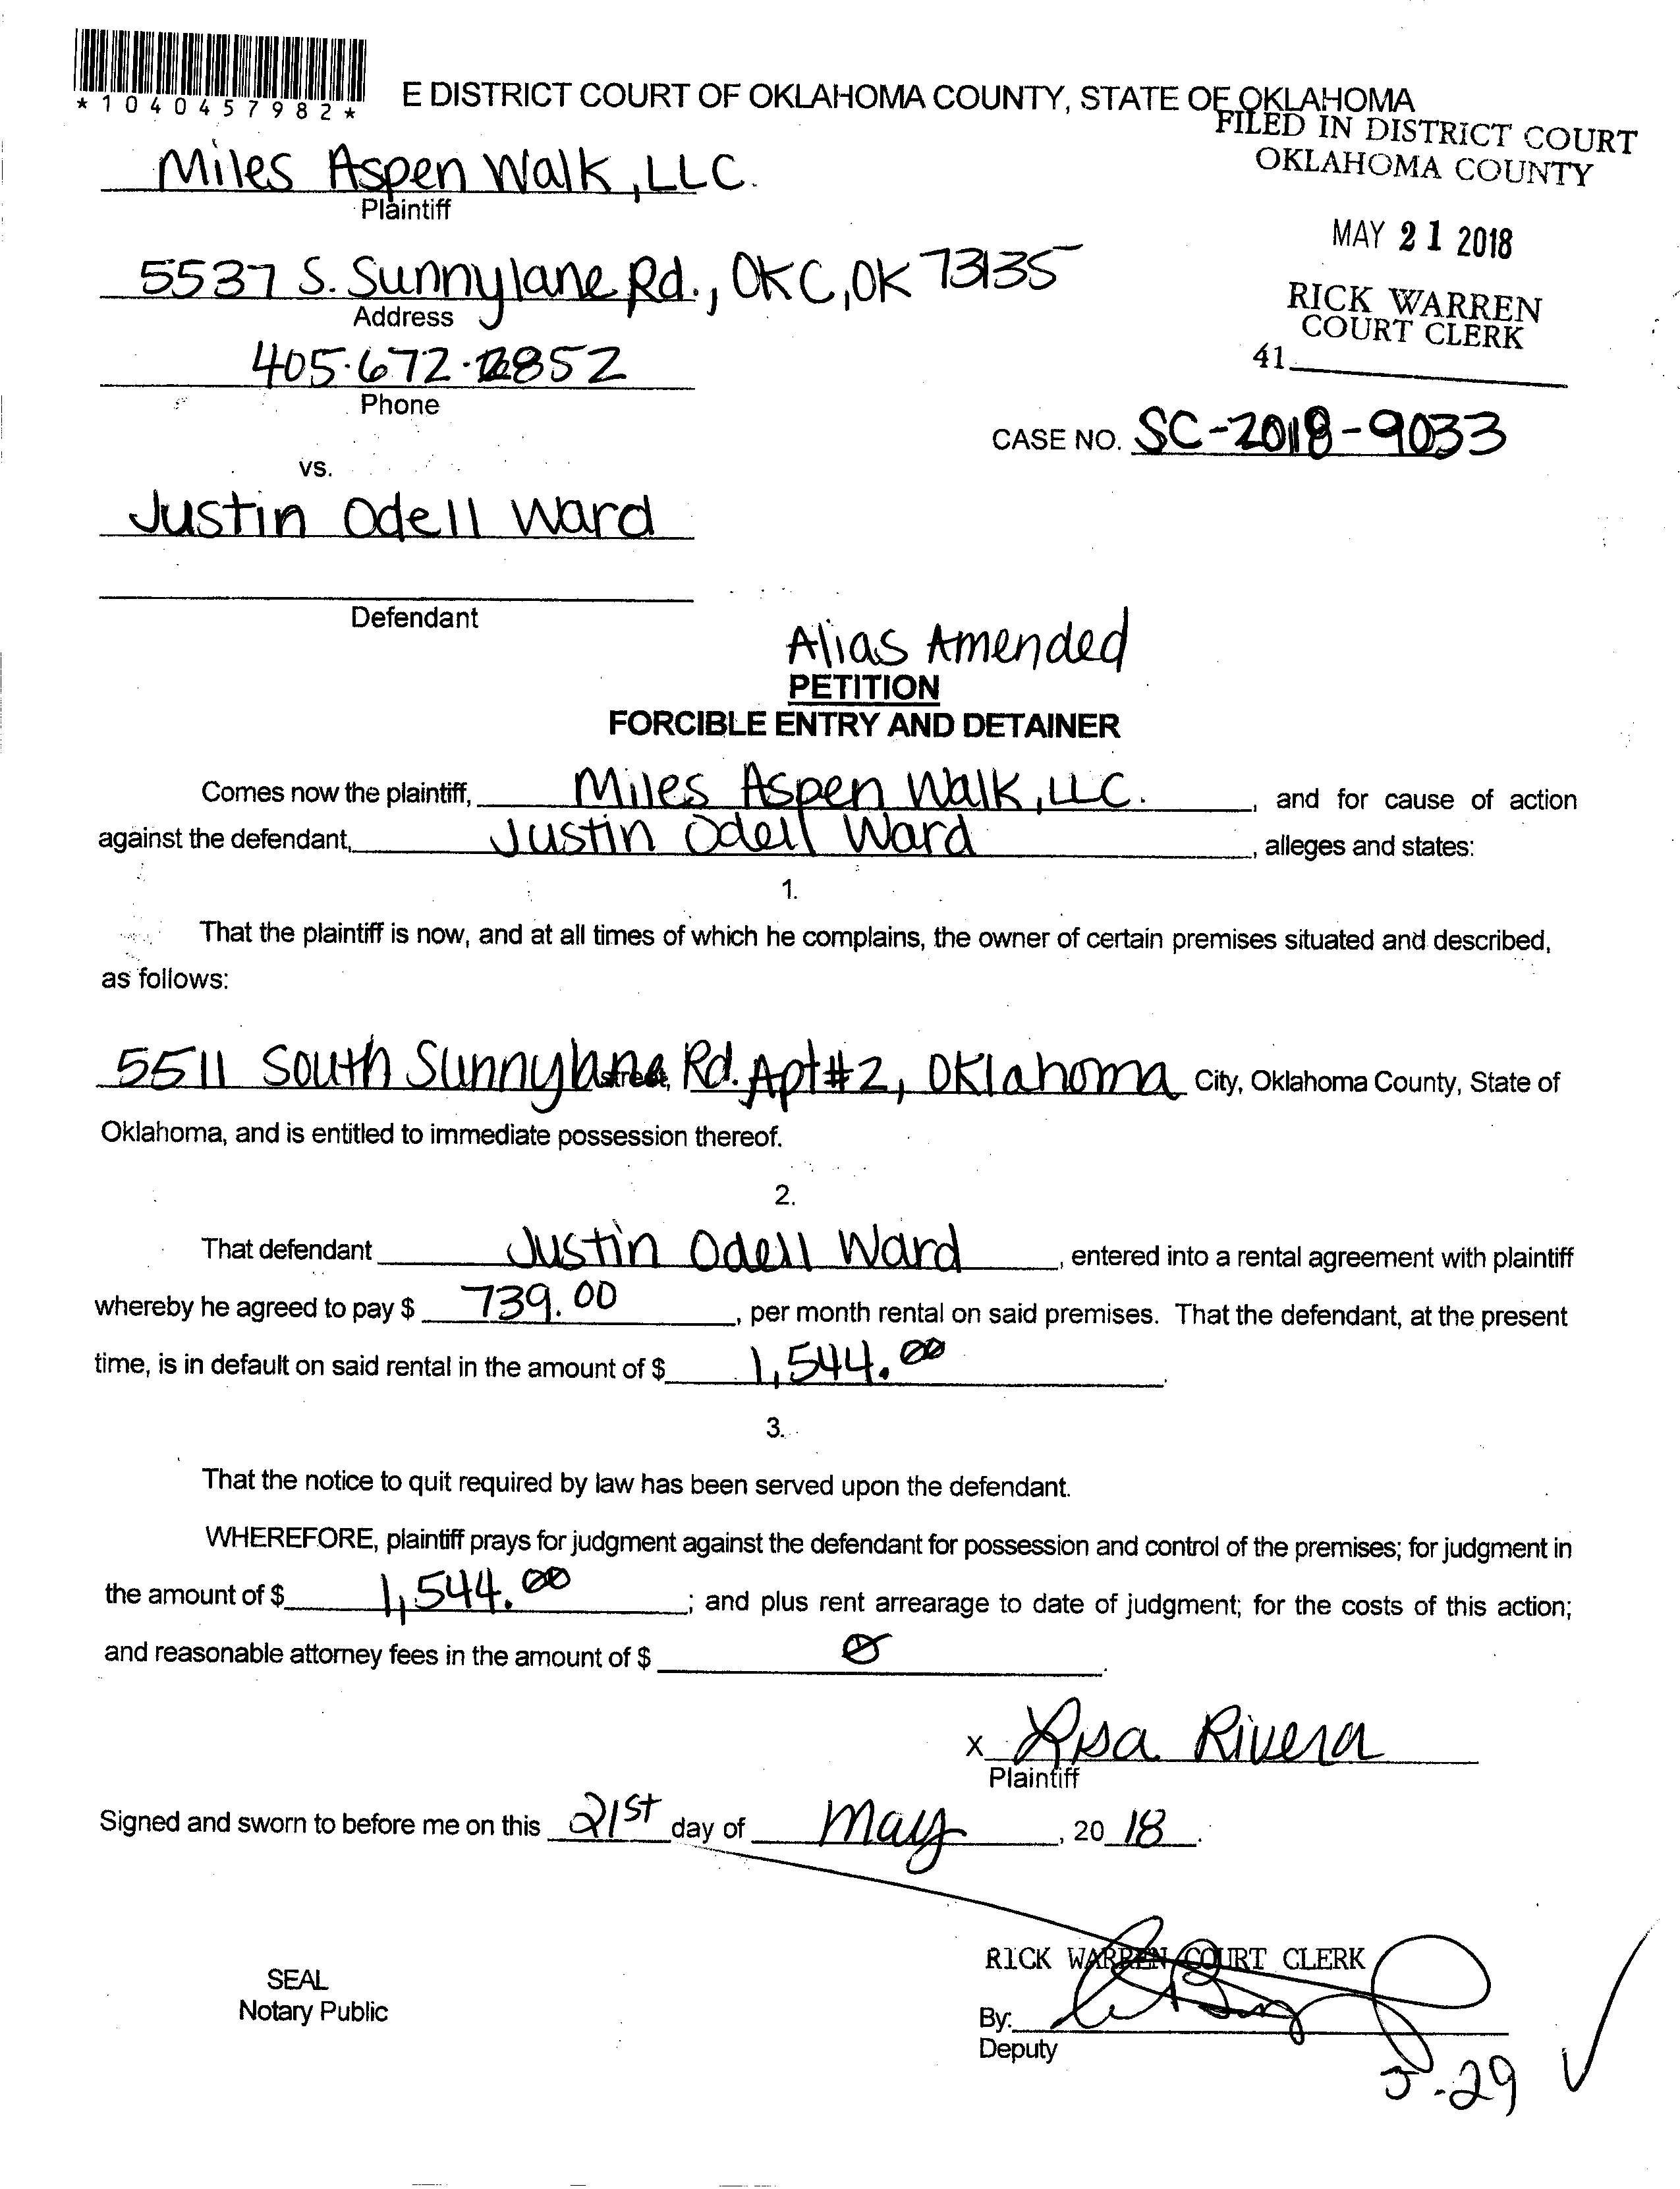 *1040457982*
E DISTRICT COURT OF OKLAHOMA COUNTY, STATE OF OKLAHOMA
FILED IN DISTRICT COURT
OKLAHOMA COUNTY
Miles Aspen Walk, LLC.
Plaintiff
MAY 21 2018
5537 S. Sunnylane Rd., OKC, OK 73135
Address
RICK WARREN
COURT CLERK
41
405.672.2852
Phone
CASE NO. SC-2018-9033
vs.
Justin Odell Ward
Defendant
Alias Amended
PETITION
FORCIBLE ENTRY AND DETAINER
Comes now the plaintiff, Miles Aspen Walk, LLC. , and for cause of action
against the defendant, Justin Odell Ward , alleges and states:
1.
That the plaintiff is now, and at all times of which he complains, the owner of certain premises situated and described,
as follows:
5511 South Sunnylane street, Rd. Apt#2, Oklahoma City, Oklahoma County, State of
Oklahoma, and is entitled to immediate possession thereof.
2.
That defendant Justin Odell Ward , entered into a rental agreement with plaintiff
whereby he agreed to pay $ 739.00 , per month rental on said premises. That the defendant, at the present
time, is in default on said rental in the amount of $ 1,544.00 .
3.
That the notice to quit required by law has been served upon the defendant.
WHEREFORE, plaintiff prays for judgment against the defendant for possession and control of the premises; for judgment in
the amount of $ 1,544.00 ; and plus rent arrearage to date of judgment; for the costs of this action;
and reasonable attorney fees in the amount of $ 0 .
X Lisa Rivera
Plaintiff
Signed and sworn to before me on this 21st day of May , 20 18 .
RICK WARREN COURT CLERK
SEAL
Notary Public
By:
Deputy
5-29